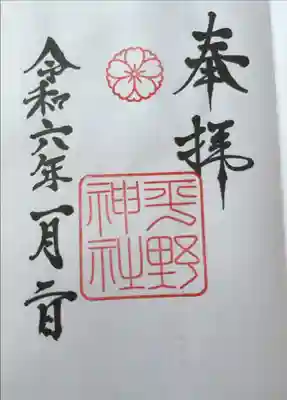 奉拝
平野
神社
令和六年一月二日